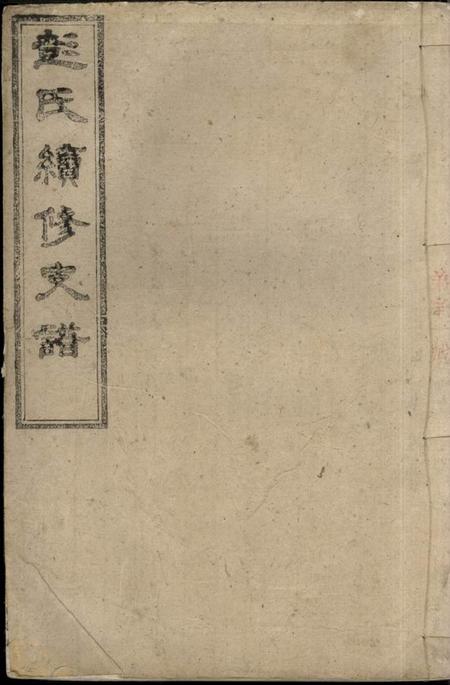 彭氏續修支譜